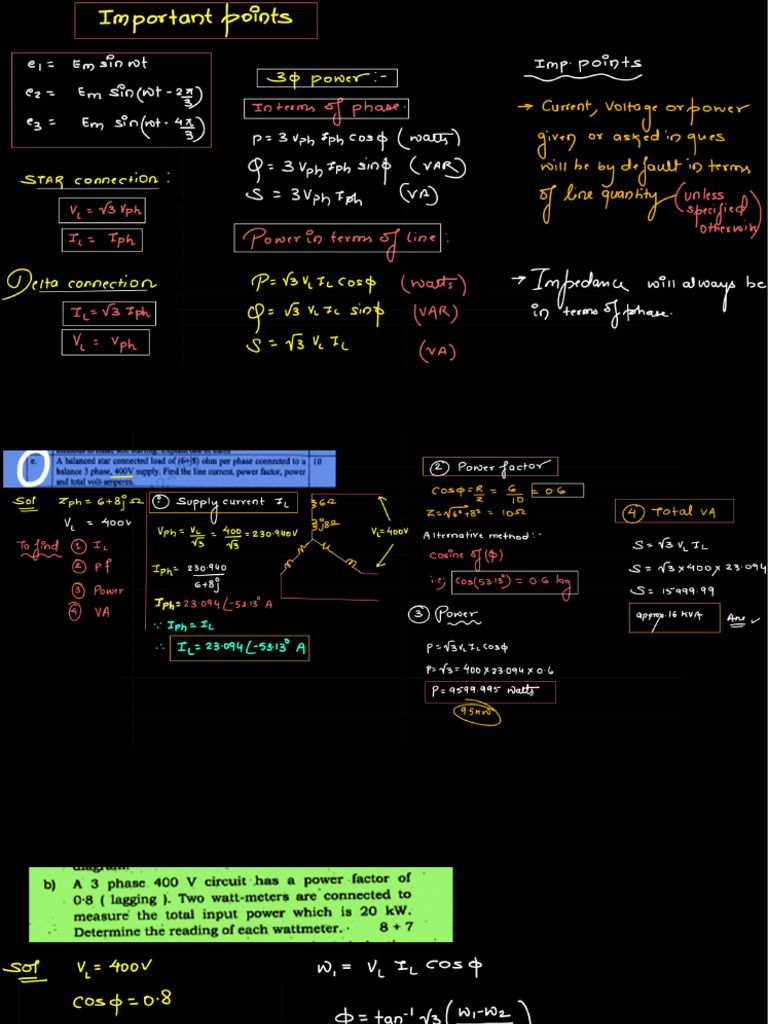 Important points
e₁ = Em sin wt
e₂ = Em sin(wt - 2π/3)
e₃ = Em sin(wt - 4π/3)
STAR connection:
V_L = √3 Vph
I_L = Iph
Delta connection
I_L = √3 Iph
V_L = Vph
3φ power:-
In terms of phase.
P = 3 Vph Iph cosφ (watts)
Q = 3 Vph Iph sinφ (VAR)
S = 3 Vph Iph (VA)
Power in terms of line:
P = √3 V_L I_L cosφ (watts)
Q = √3 V_L I_L sinφ (VAR)
S = √3 V_L I_L (VA)
Imp. points
→ Current, Voltage or power
given or asked in ques
will be by default in terms
of line quantity (unless
specified
otherwise)
→ Impedance will always be
in terms of phase.
e. A balanced star connected load of (6+j8) ohm per phase connected to a 10
balance 3 phase, 400V supply. Find the line current, power factor, power
and total volt-amperes.
Sol Zph = 6+8j Ω
V_L = 400v
To find ① I_L
② Pf
③ Power
④ VA
①: Supply current I_L
Vph = V_L/√3 = 400/√3 = 230.940V
Iph = 230.940/6+8j
Iph = 23.094∠-53.13° A
∵ Iph = I_L
∴ I_L = 23.094∠-53.13° A
6Ω
j8Ω
V_L = 400V
② Power factor
cosφ = R/Z = 6/10 = 0.6
Z = √6²+8² = 10Ω
Alternative method:-
cosine of (φ)
i.e; cos(53.13°) = 0.6 lag
③ Power
P = √3 V_L I_L cosφ
P = √3 = 400 × 23.094 × 0.6
P = 9599.995 watts
95KW
④ Total VA
S = √3 V_L I_L
S = √3 × 400 × 23.094
S = 15999.99
approx. 16 KVA Ans
diagram.
b) A 3 phase 400 V circuit has a power factor of
0·8 ( lagging ). Two watt-meters are connected to
measure the total input power which is 20 kW.
Determine the reading of each wattmeter. 8 + 7
Sol V_L = 400V
cosφ = 0.8
W₁ = V_L I_L cosφ
φ = tan⁻¹ √3 (W₁-W₂